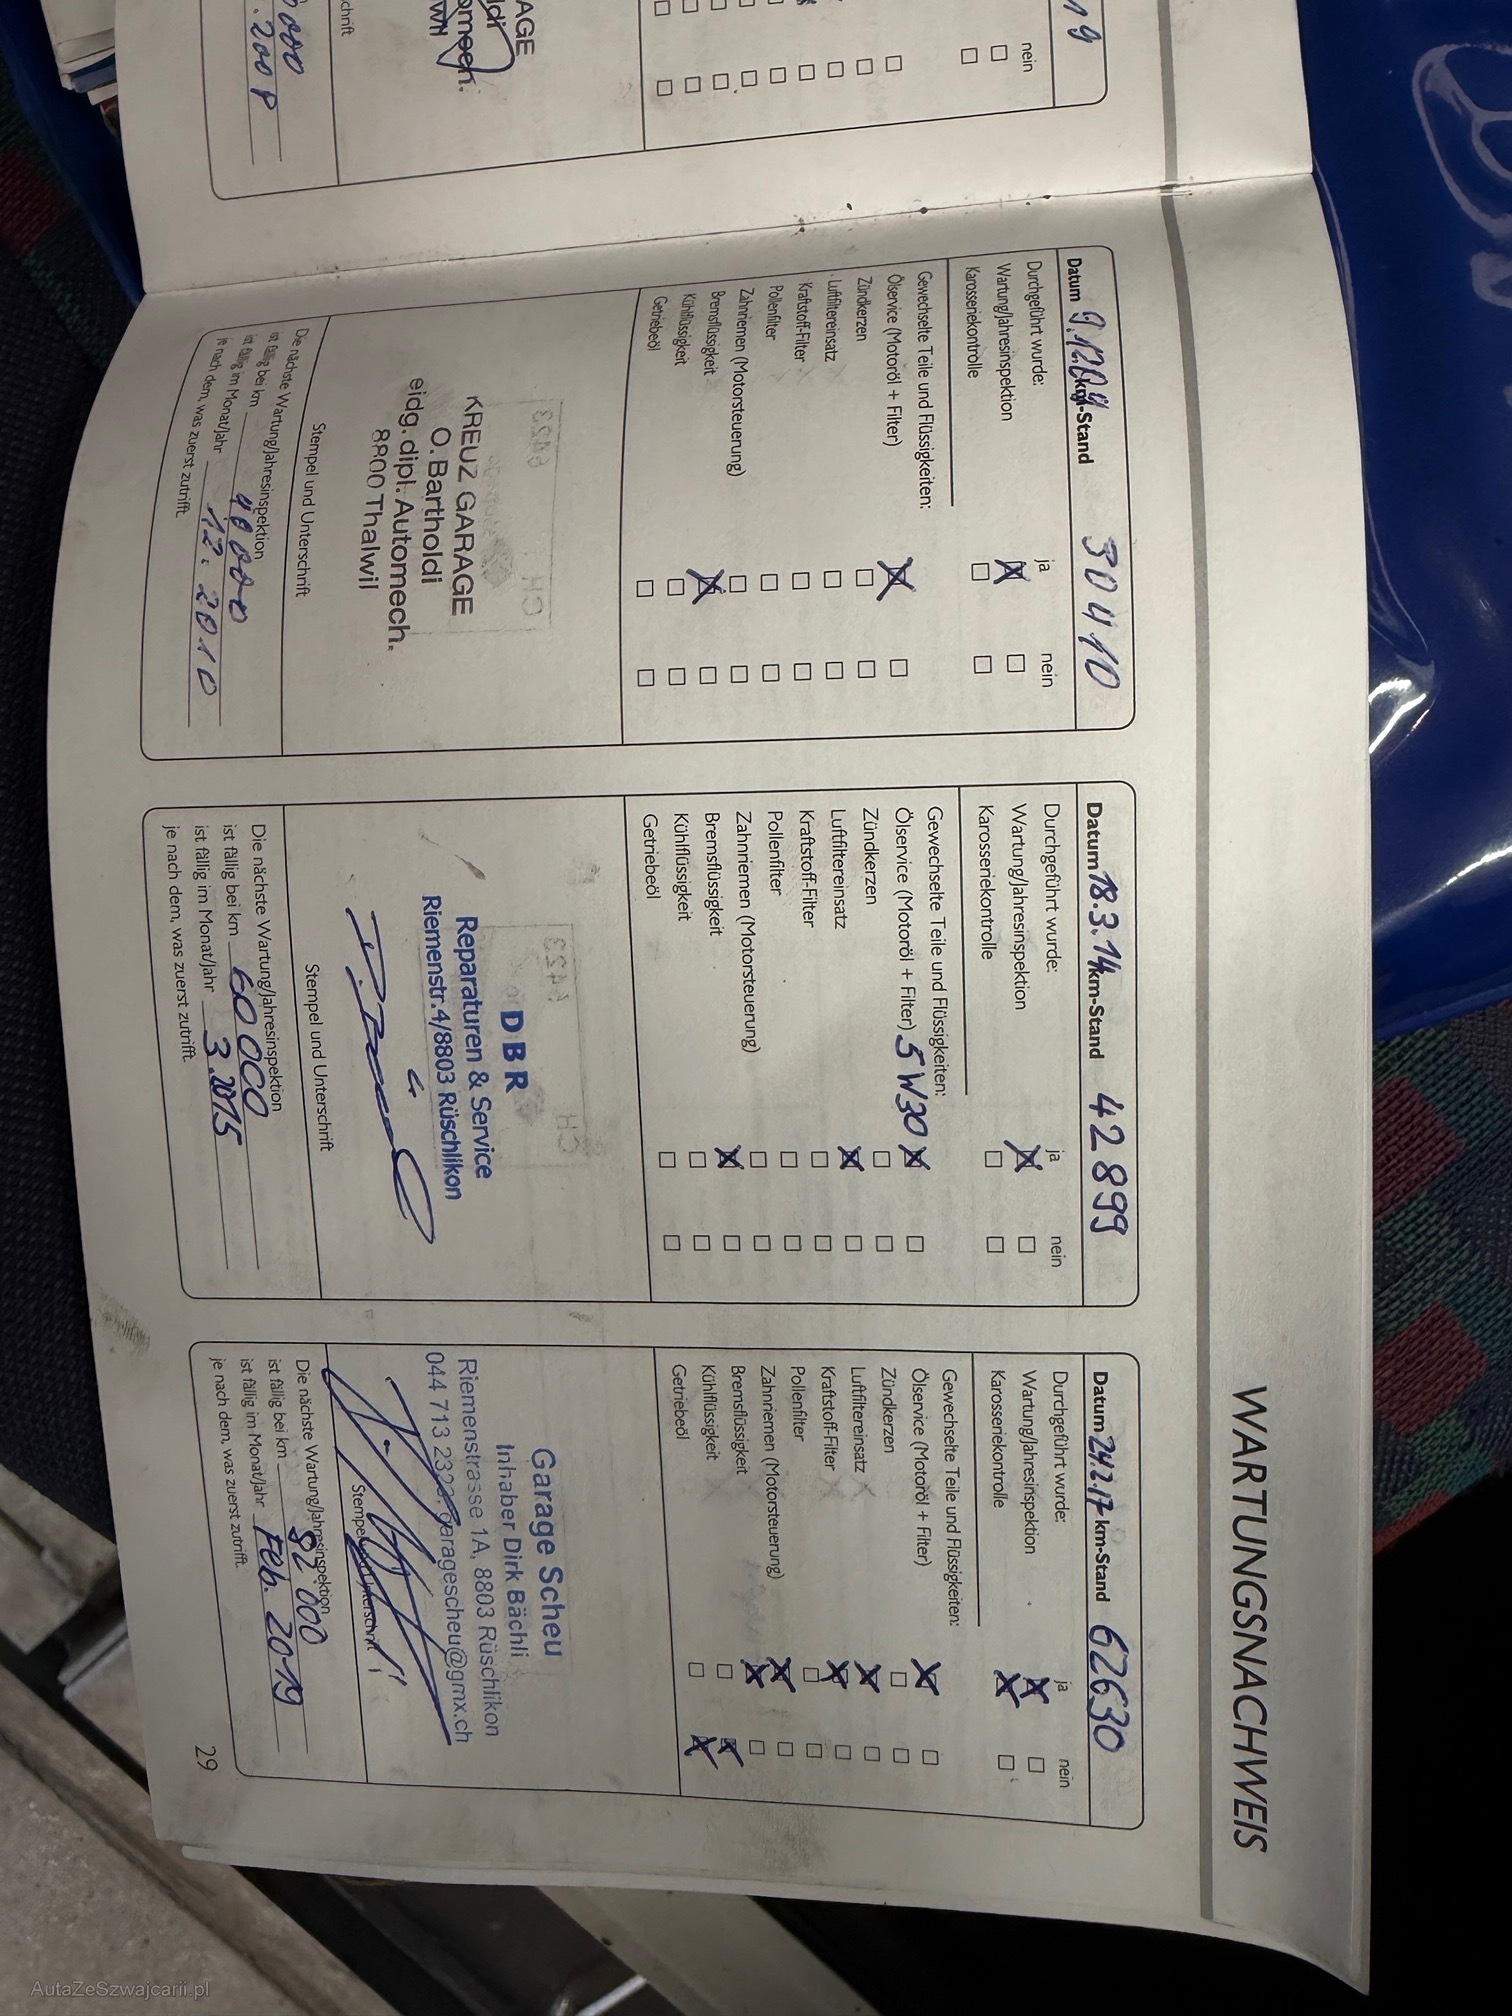 WARTUNGSNACHWEIS
19
nein
AGE
000
.200
Datum 9.12.09 km-Stand 30410
Durchgeführt wurde: ja nein
Wartung/Jahresinspektion
Karosseriekontrolle
Gewechselte Teile und Flüssigkeiten:
Ölservice (Motoröl + Filter)
Zündkerzen
Luftfiltereinsatz
Kraftstoff-Filter
Pollenfilter
Zahnriemen (Motorsteuerung)
Bremsflüssigkeit
Kühlflüssigkeit
Getriebeöl
KREUZ GARAGE
O. Bartholdi
eidg. dipl. Automech.
8800 Thalwil
Stempel und Unterschrift
Die nächste Wartung/Jahresinspektion
ist fällig bei km 40000
ist fällig im Monat/Jahr 12. 2010
je nach dem, was zuerst zutrifft.
Datum 18.3.14 km-Stand 42899
Durchgeführt wurde: ja nein
Wartung/Jahresinspektion
Karosseriekontrolle
Gewechselte Teile und Flüssigkeiten:
Ölservice (Motoröl + Filter) 5W30
Zündkerzen
Luftfiltereinsatz
Kraftstoff-Filter
Pollenfilter
Zahnriemen (Motorsteuerung)
Bremsflüssigkeit
Kühlflüssigkeit
Getriebeöl
DBR
Reparaturen & Service
Riemenstr.4/8803 Rüschlikon
Stempel und Unterschrift
Die nächste Wartung/Jahresinspektion
ist fällig bei km 60000
ist fällig im Monat/Jahr 3.2015
je nach dem, was zuerst zutrifft.
Datum 24.2.17 km-Stand 62630
Durchgeführt wurde: ja nein
Wartung/Jahresinspektion
Karosseriekontrolle
Gewechselte Teile und Flüssigkeiten:
Ölservice (Motoröl + Filter)
Zündkerzen
Luftfiltereinsatz
Kraftstoff-Filter
Pollenfilter
Zahnriemen (Motorsteuerung)
Bremsflüssigkeit
Kühlflüssigkeit
Getriebeöl
Garage Scheu
Inhaber Dirk Bächli
Riemenstrasse 1A, 8803 Rüschlikon
044 713 2322. garagescheu@gmx.ch
Stempel und Unterschrift
Die nächste Wartung/Jahresinspektion
ist fällig bei km 82000
ist fällig im Monat/Jahr Feb. 2019
je nach dem, was zuerst zutrifft.
29
AutaZeSzwajcarii.pl